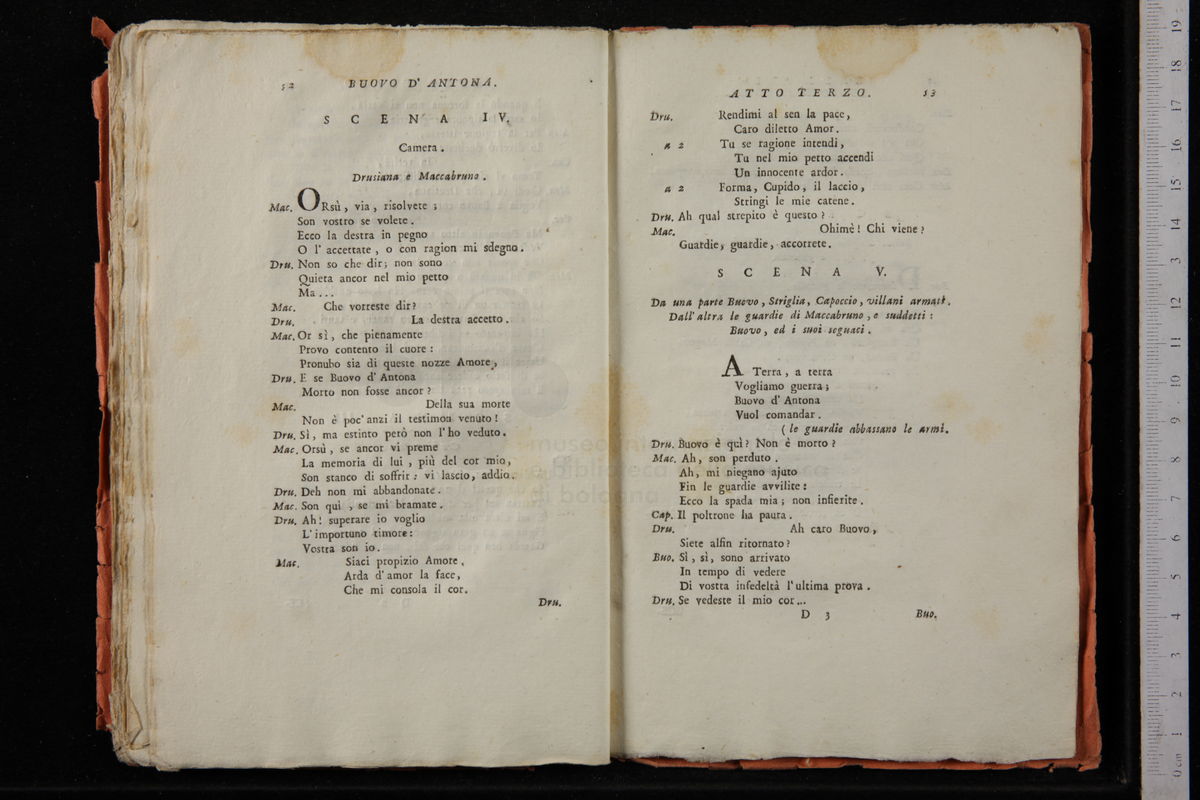 52 BUOVO D' ANTONA.
SCENA IV.
Camera.
Drusiana e Maccabruno.
Mac. ORsù, via, risolvete;
Son vostro se volete.
Ecco la destra in pegno
O l' accettate, o con ragion mi sdegno.
Dru. Non so che dir; non sono
Quieta ancor nel mio petto
Ma...
Mac. Che vorreste dir?
Dru. La destra accetto.
Mac. Or sì, che pienamente
Provo contento il cuore:
Pronubo sia di queste nozze Amore,
Dru. E se Buovo d' Antona
Morto non fosse ancor?
Mac. Della sua morte
Non è poc' anzi il testimon venuto!
Dru. Sì, ma estinto però non l' ho veduto.
Mac. Orsù, se ancor vi preme
La memoria di lui, più del cor mio,
Son stanco di soffrir: vi lascio, addio.
Dru. Deh non mi abbandonate.
Mac. Son qui, se mi bramate.
Dru. Ah! superare io voglio
L' importuno timore:
Vostra son io.
Mac. Siaci propizio Amore,
Arda d' amor la face,
Che mi consola il cor.
Dru.
ATTO TERZO. 53
Dru. Rendimi al sen la pace,
Caro diletto Amor.
a 2 Tu se ragione intendi,
Tu nel mio petto accendi
Un innocente ardor.
a 2 Forma, Cupido, il laccio,
Stringi le mie catene.
Dru. Ah qual strepito è questo?
Mac. Ohimè! Chi viene?
Guardie, guardie, accorrete.
SCENA V.
Da una parte Buovo, Striglia, Capoccio, villani armati.
Dall' altra le guardie di Maccabruno, e suddetti:
Buovo, ed i suoi seguaci.
A Terra, a terra
Vogliamo guerra;
Buovo d' Antona
Vuol comandar.
(le guardie abbassano le armi.
Dru. Buovo è quì? Non è morto?
Mac. Ah, son perduto.
Ah, mi niegano ajuto
Fin le guardie avvilite:
Ecco la spada mia; non infierite.
Cap. Il poltrone ha paura.
Dru. Ah caro Buovo,
Siete alfin ritornato?
Buo. Sì, sì, sono arrivato
In tempo di vedere
Di vostta infedeltà l' ultima prova.
Dru. Se vedeste il mio cor...
D 3 Buo.